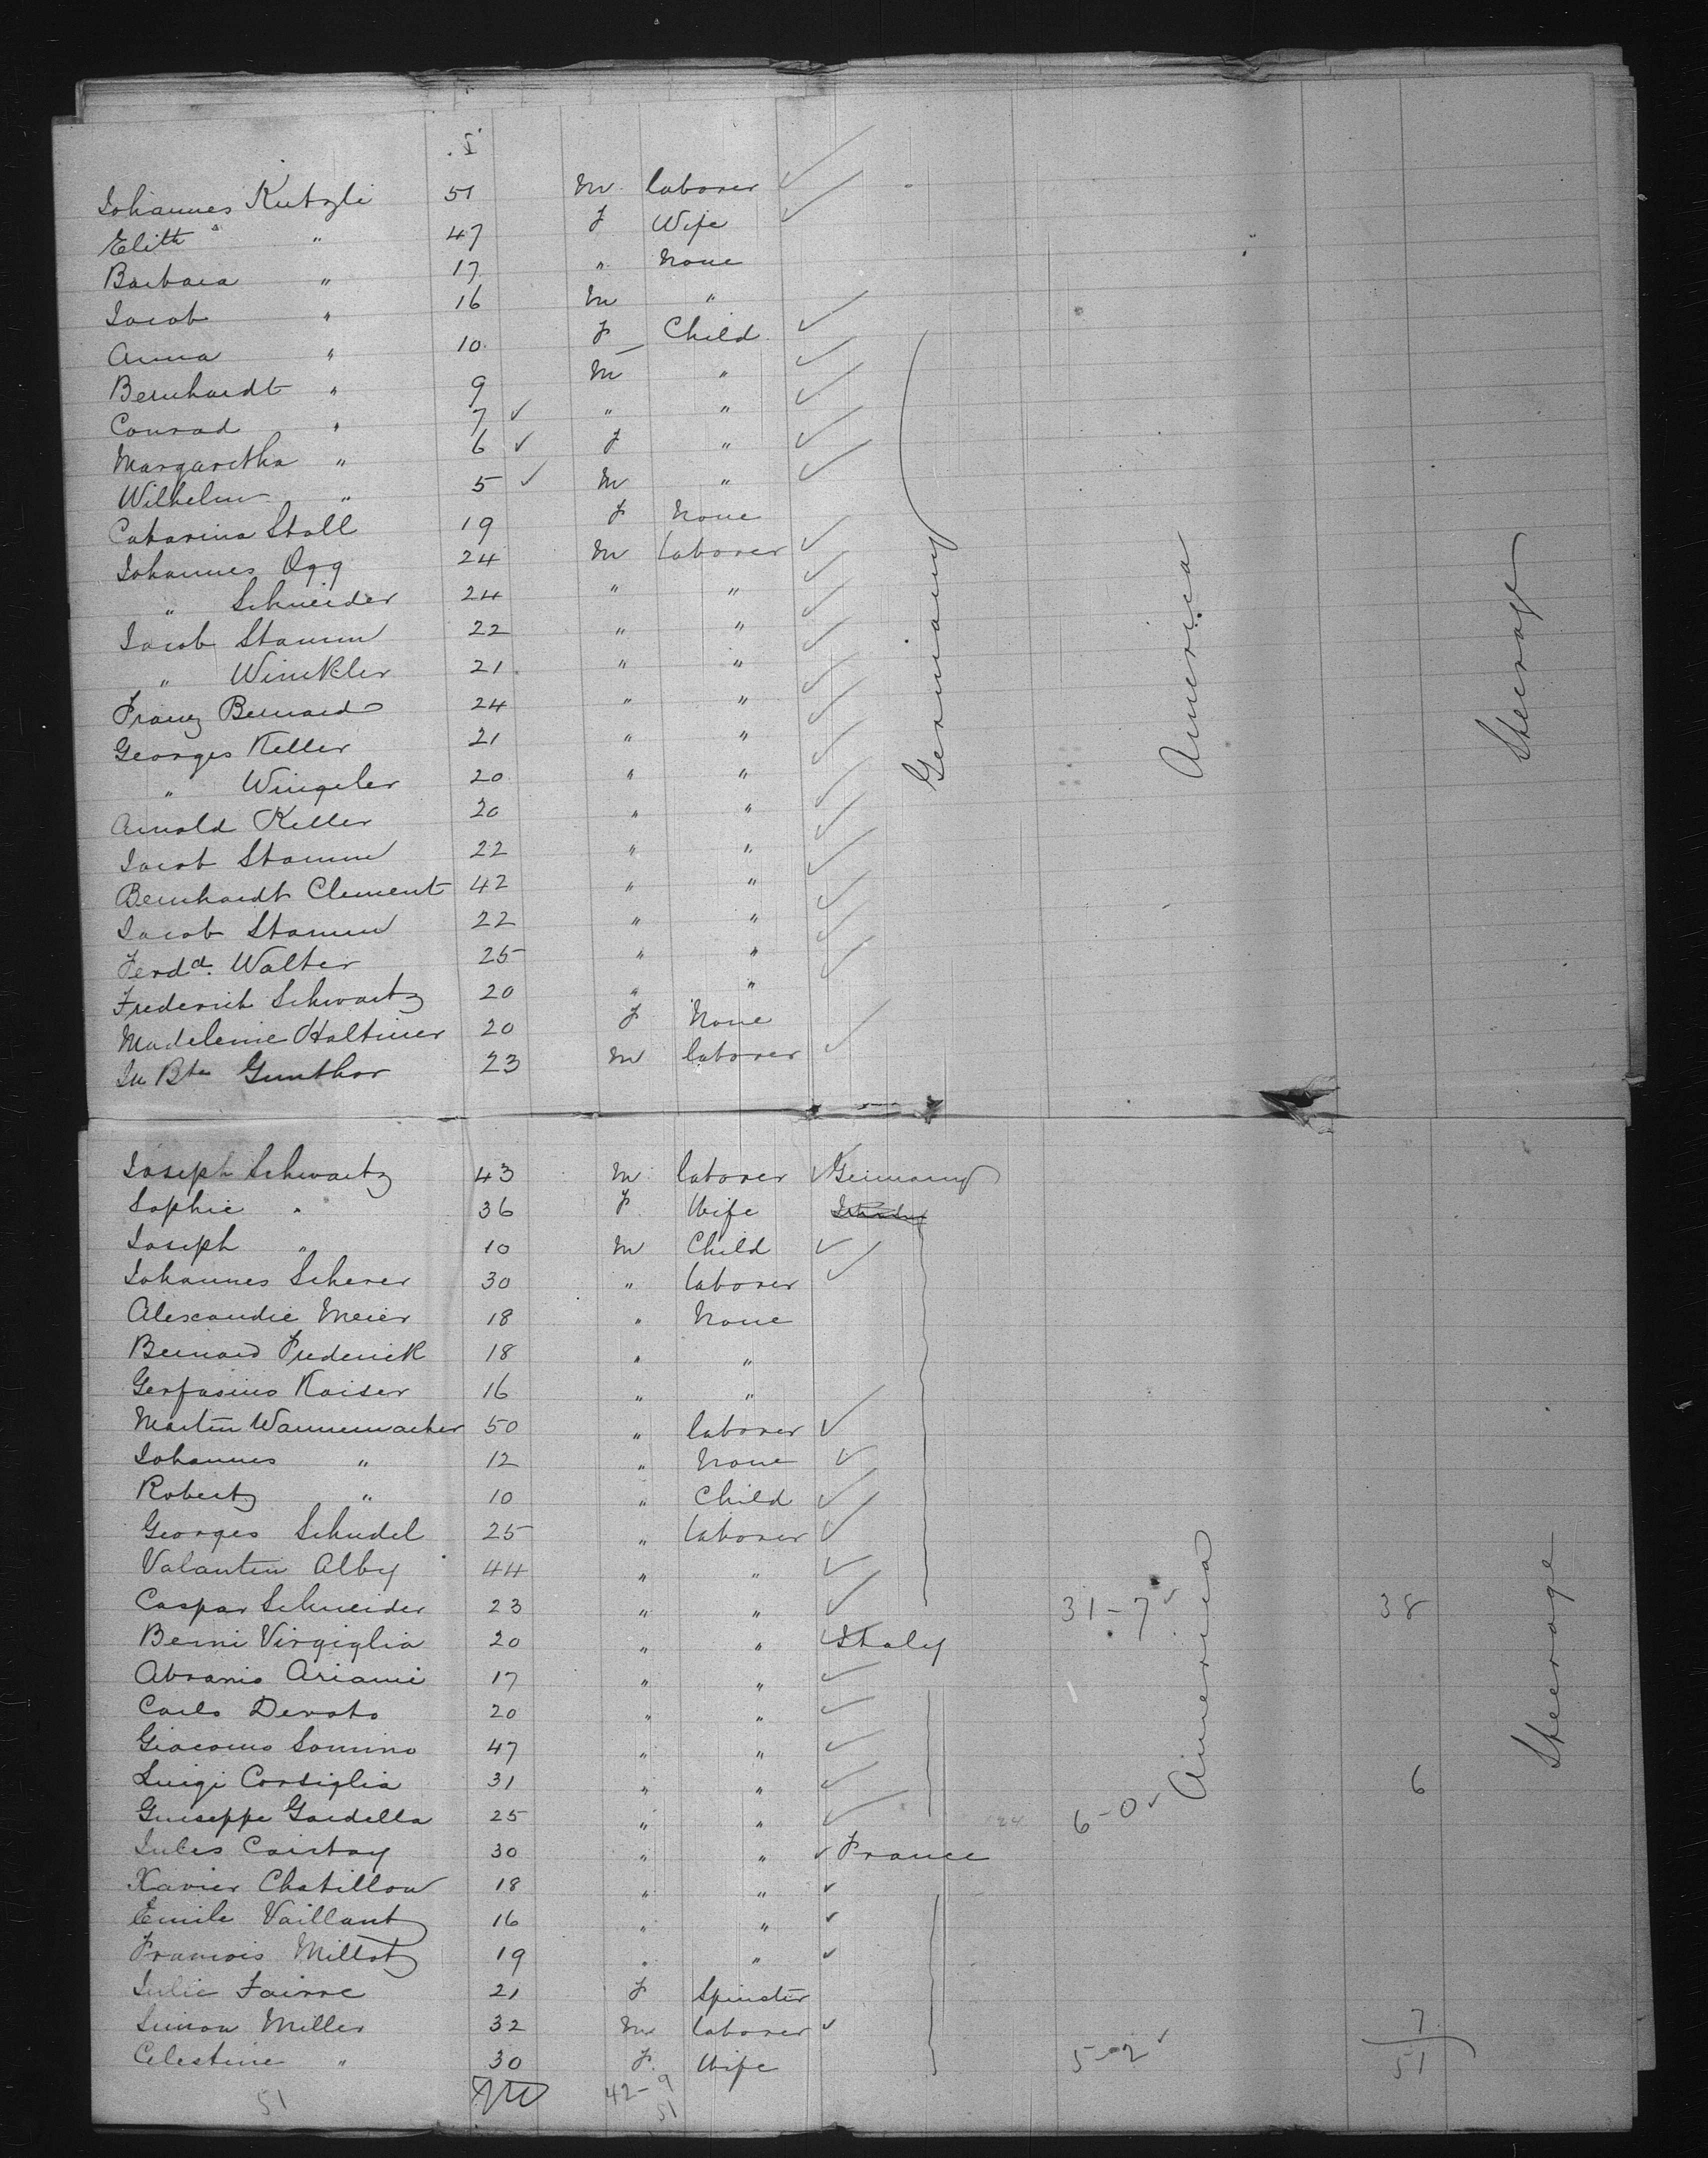 Johannes Kutzli 51 M laborer ✓
Elith " 47 F Wife ✓
Barbara " 17 " None
Jacob " 16 M "
Anna " 10 F Child ✓
Bernhardt " 9 M " ✓
Conrad " 7 ✓ " " ✓
Margaretha " 6 ✓ F " ✓
Wilhelm " 5 ✓ M " ✓
Catarina Stoll 19 F None
Johannes Ogg 24 M laborer ✓
" Schneider 24 " " ✓
Jacob Stamm 22 " " ✓
" Winkler 21 " " ✓
Franz Bernard 24 " " ✓
Georges Keller 21 " " ✓
" Wingeler 20 " " ✓
Arnold Keller 20 " " ✓
Jacob Stamm 22 " " ✓
Bernhardt Clement 42 " " ✓
Jacob Stamm 22 " " ✓
Ferdd. Walter 25 " " ✓
Frederick Schwartz 20 " " ✓
Madeleine Haltiner 20 F None
Jn Bte Gunthor 23 M laborer ✓
Germany
America
Steerage
Joseph Schwartz 43 M laborer ✓ Germany
Sophie " 36 F Wife
Joseph " 10 M Child ✓
Johannes Scherer 30 " laborer ✓
Alexandre Meier 18 " None
Bernard Frederick 18 " "
Gerfasius Kaiser 16 " "
Martin Wannemacher 50 " laborer ✓
Johannes " 12 " None ✓
Robert " 10 " Child ✓
Georges Schudel 25 " laborer ✓
Valantin Alby 44 " " ✓
Caspar Schneider 23 " " ✓ 31-7 ✓ 38
Berni Virgiglia 20 " " ✓ Italy
Abramo Ariami 17 " " ✓
Carlo Devoto 20 " " ✓
Giacomo Somino 47 " " ✓
Luigi Corsiglia 31 " " ✓ 6
Guiseppe Gardella 25 " " ✓ 6-0 ✓
Jules Cairtay 30 " " ✓ France
Xavier Chatillon 18 " " ✓
Emile Vaillant 16 " " ✓
Francois Millot 19 " " ✓
Julie Fairre 21 F Spinster
Simon Miller 32 M laborer ✓ 7
Celestine " 30 F Wife 5-2 ✓ 51
51 42-9
51
America
Steerage